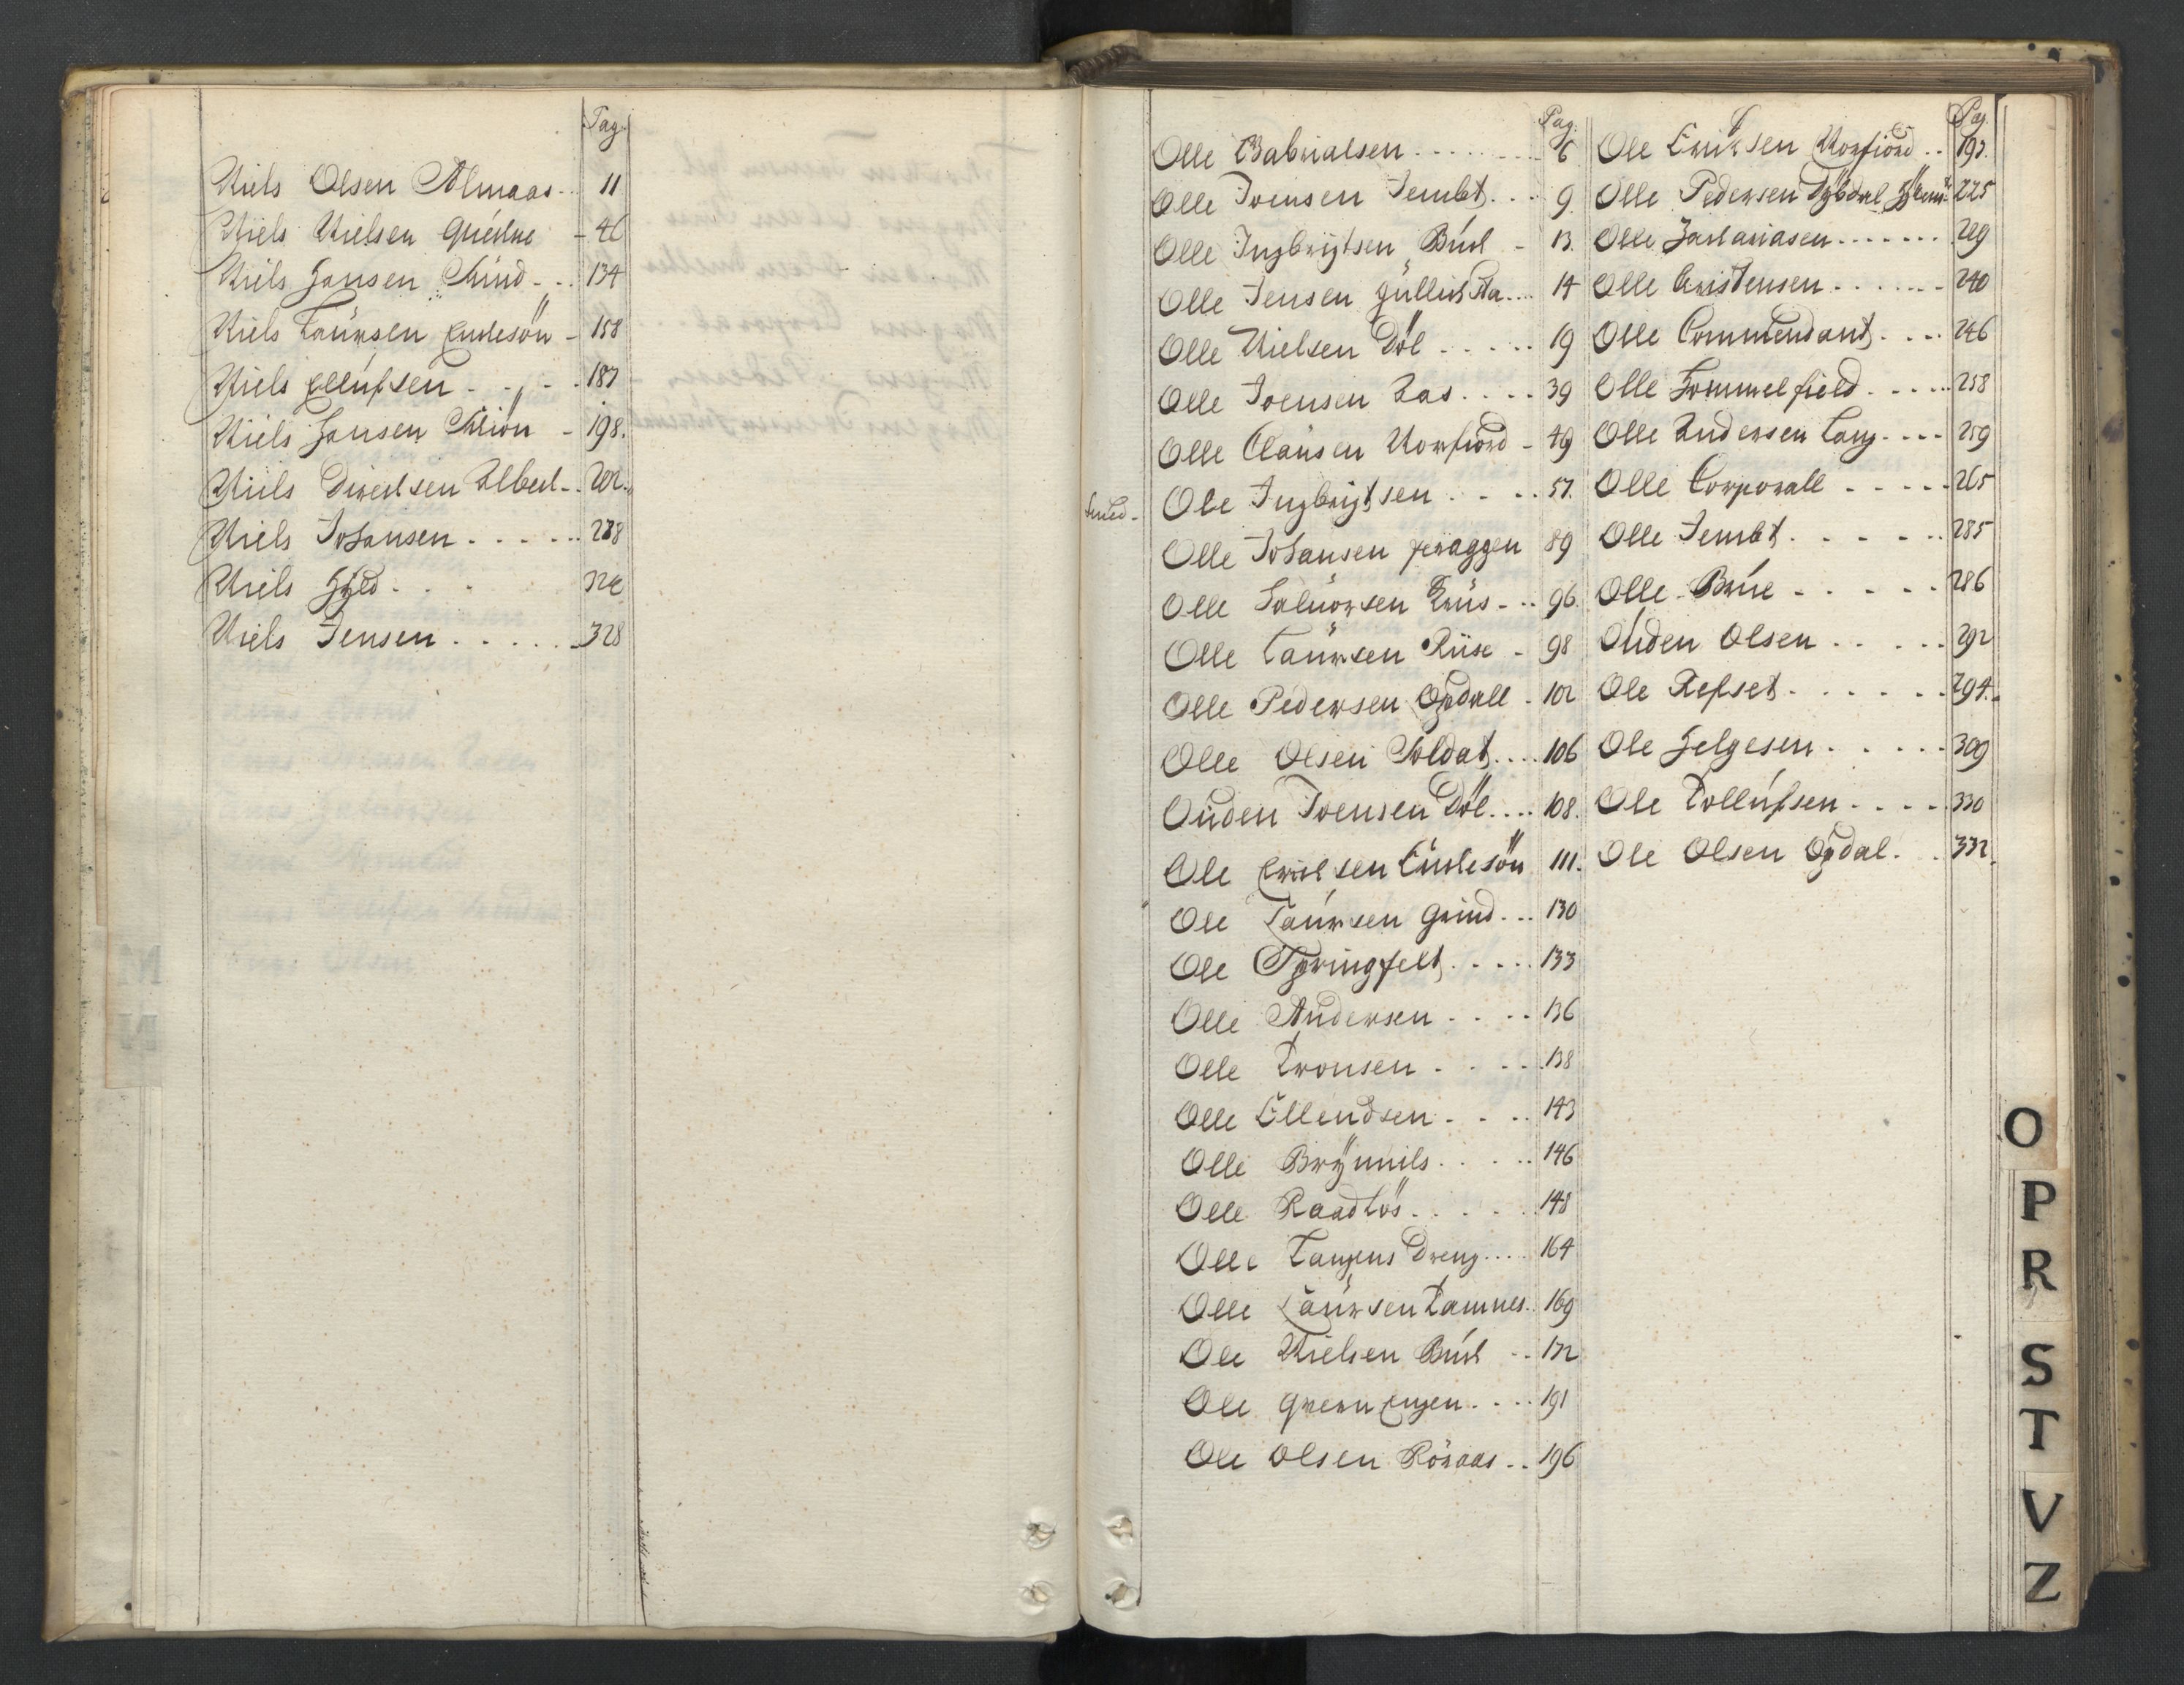 Pag.
Niels Olsen Almaas - 11
Niels Nielsen - 46
Niels Hansen Lund - - . 134
Niels Laursen - 158
Niels Ellufsen - . - . 187
Niels Hansen - 198.
Niels Direchsen - . 202.
Niels Johansen . . . . . 278
Niels . . .
Niels Jensen . . . . . 328
Pag.
Olle Gabrialsen . . . . . . 6
Olle Joensen Jembt . . . 9
Olle Ingbrigtsen Buch - 13.
Olle Jensen . . . . 14
Olle Nielsen Döl . . . . . 19
Olle Joensen Aas . . . . 39
Olle Clausen Norfiord - 49
Smed - Ole Ingbrigtsen . . . . 57.
Olle Johansen 89
Olle Haluorsen - . . 96.
Olle Laursen Riise - 98
Olle Pedersen Opdall - 102
Olle Olsen Soldat . . . . 106
Ouden Joensen Döl . . . . 108.
Ole Erichsen 111.
Ole Laursen Grind . . . 130
Ole Springfelt . . . . . 133
Olle Andersen . . . . 136
Olle Tronsen . . . . 138
Olle Ellendsen . . . . 143
Olle Brynnils . . . . . 146
Olle Raadlös . . . . . 148
Olle Langens Dreng . . . . 164
Olle Laursen Tamnes . . 169
Ole Nielsen Buch . . 172
Ole . . . . 191
Ole Olsen Röraas . . 196
Pag.
Ole Eriksen Norfiord . . 197.
Olle Pedersen 225
Olle Zachariasen . . . . . . .
Olle Christensen . . . . . . 240
Olle Commendant . . . . 246
Olle Hommelfield . . . . . 258
Olle Andersen Lang . . . . 259
Olle Corporall . . . . . 265
Olle Jembt . . . . . . 285
Olle Brue . . . . . 286
Ouden Olsen . . . . . 292
Ole Refset . . . . . . 294.
Ole Helgesen . . . . . 309
Ole Tollufsen . . . . . 330
Ole Olsen Opdal . . 332.
O
P
R
S
T
V
Z